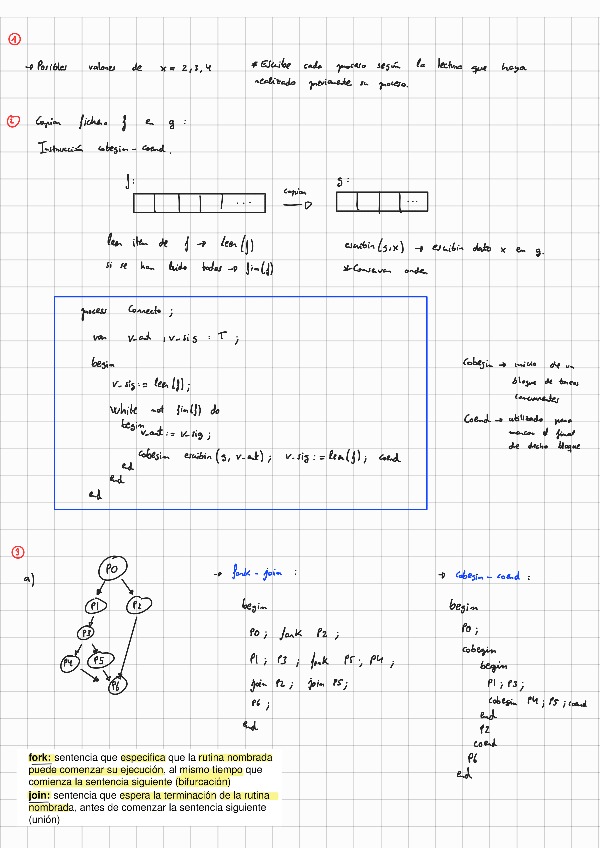 1
→ Posibles valores de x = 2, 3, 4
* Escribe cada proceso según la lectura que haya
realizado previamente su proceso.
2 Copiar fichero f en g :
Instrucción cobegin-coend.
f :
copiar
g :
...
...
leer item de f → leer(f)
si se han leido todas → fin(f)
escribir(g,x) → escribir dato x en g.
* Conservar orden
process Correcto ;
var v_ant , v_sig : T ;
begin
v_sig := leer(f) ;
while not fin(f) do
begin
v_ant := v_sig ;
cobegin escribir(g, v_ant) ; v_sig := leer(f) ; coend
end
end
end
Cobegin → inicio de un
bloque de tareas
concurrentes
Coend → utilizado para
marcar el final
de dicho bloque
3
a)
P0
P1 P2
P3
P4 P5
P6
→ fork - join :
begin
P0 ; fork P2 ;
P1 ; P3 ; fork P5 ; P4 ;
join P2 ; join P5 ;
P6 ;
end
→ cobegin - coend :
begin
P0 ;
cobegin
begin
P1 ; P3 ;
cobegin P4 ; P5 ; coend
end
P2
coend
P6
end
fork: sentencia que especifica que la rutina nombrada
puede comenzar su ejecución, al mismo tiempo que
comienza la sentencia siguiente (bifurcación)
join: sentencia que espera la terminación de la rutina
nombrada, antes de comenzar la sentencia siguiente
(unión)